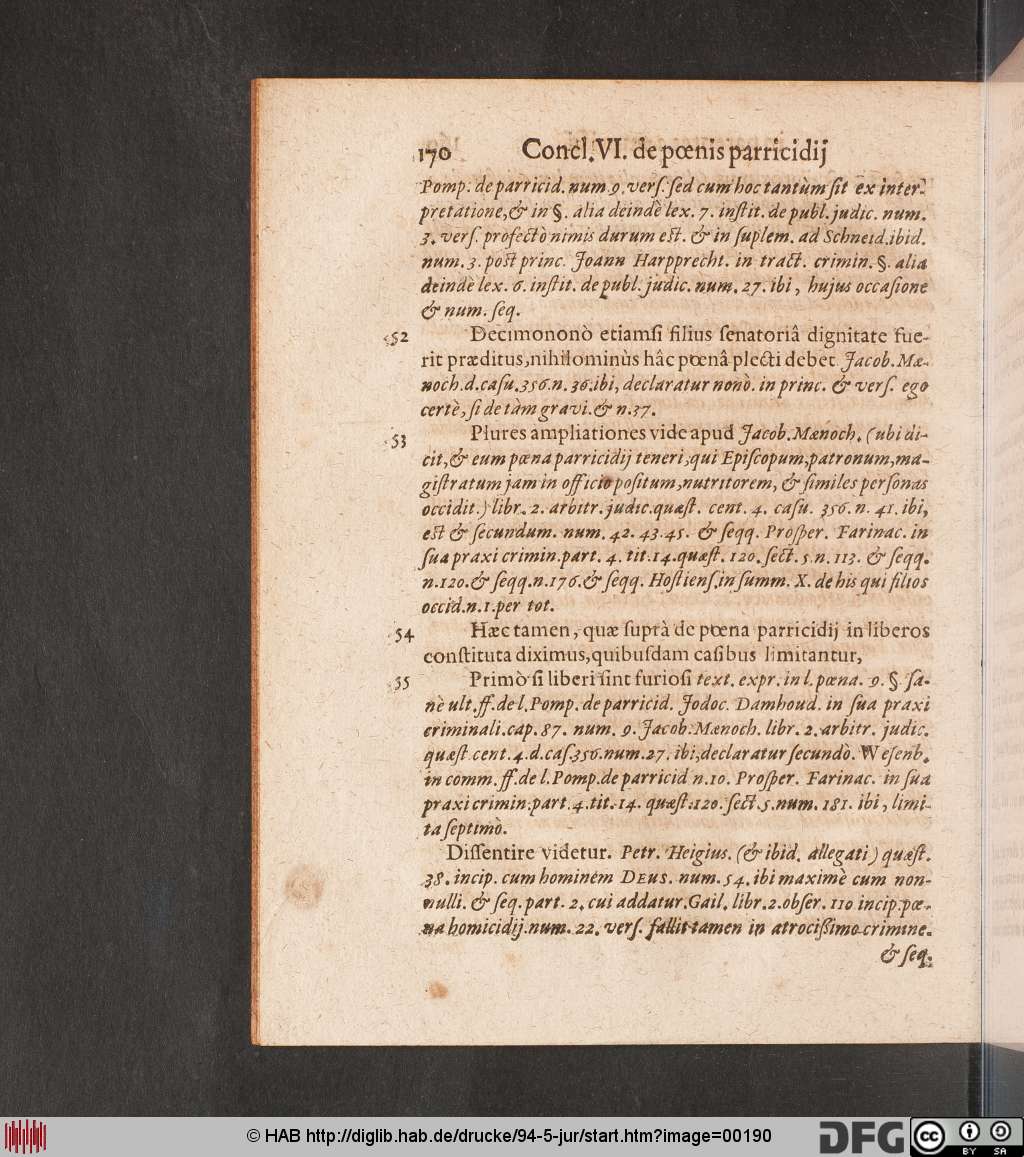 170 Concl. VI. de pœnis parricidij
Pomp. de parricid. num. 9. verſ. ſed cum hoc tantùm ſit ex inter-
pretatione, & in §. alia deindè lex. 7. inſtit. de publ. judic. num.
3. verſ. profectò nimis durum eſt. & in ſuplem. ad Schneid. ibid.
num. 3. poſt princ. Joann Harpprecht. in tract. crimin. §. alia
deindè lex. 6. inſtit. de publ. judic. num. 27. ibi, hujus occaſione
& num. ſeq.
52 Decimononò etiamſi filius ſenatoriâ dignitate fue-
rit præditus, nihilominùs hâc pœnâ plecti debet. Jacob. Mæ-
noch. d. caſu. 356. n. 36. ibi, declaratur nonò. in princ. & verſ. ego
certè, ſi de tàm gravi. & n. 37.
53 Plures ampliationes vide apud Jacob. Mænoch. (ubi di-
cit, & eum pœna parricidij teneri, qui Epiſcopum, patronum, ma-
giſtratum jam in officio poſitum, nutritorem, & ſimiles perſonas
occidit.) libr. 2. arbitr. judic. quæſt. cent. 4. caſu. 356. n. 41. ibi,
eſt & ſecundum. num. 42. 43. 45. & ſeqq. Proſper. Farinac. in
ſua praxi crimin. part. 4. tit. 14. quæſt. 120. ſect. 5. n. 113. & ſeqq.
n. 120. & ſeqq. n. 176. & ſeqq. Hoſtienſ. in ſumm. X. de his qui filios
occid. n. 1. per tot.
54 Hæc tamen, quæ ſuprà de pœna parricidij in liberos
conſtituta diximus, quibuſdam caſibus limitantur,
35 Primò ſi liberi ſint furioſi text. expr. in l. pœna. 9. §. ſa-
nè ult. ff. de l. Pomp. de parricid. Jodoc. Damhoud. in ſua praxi
criminali. cap. 87. num. 9. Jacob. Mænoch. libr. 2. arbitr. judic.
quæſt. cent. 4. d. caſ. 356. num. 27. ibi, declaratur ſecundò. Weſenb.
in comm. ff. de l. Pomp. de parricid n. 10. Proſper. Farinac. in ſua
praxi crimin. part. 4. tit. 14. quæſt. 120. ſect. 5. num. 181. ibi, limi-
ta ſeptimò.
Diſſentire videtur. Petr. Heigius. (& ibid. allegati) quæſt.
38. incip. cum hominem DEUS. num. 54. ibi maximè cum non-
nulli. & ſeq. part. 2. cui addatur. Gail. libr. 2. obſer. 110 incip. pœ-
na homicidij. num. 22. verſ. fallit tamen in atrociſſimo crimine.
& ſeq.
© HAB http://diglib.hab.de/drucke/94-5-jur/start.htm?image=00190
DFG
cc BY SA